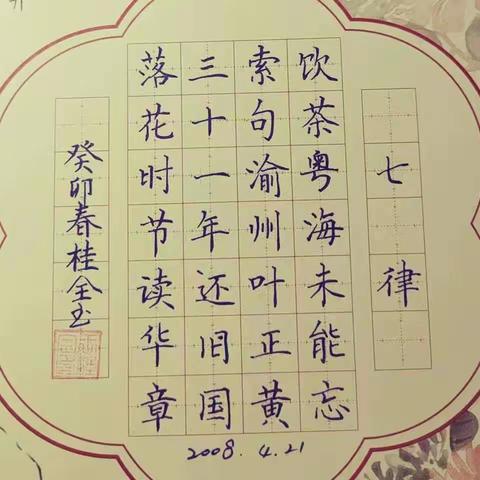 七律
饮茶粤海未能忘
索句渝州叶正黄
三十一年还旧国
落花时节读华章
癸卯春桂全玉
2008.4.21